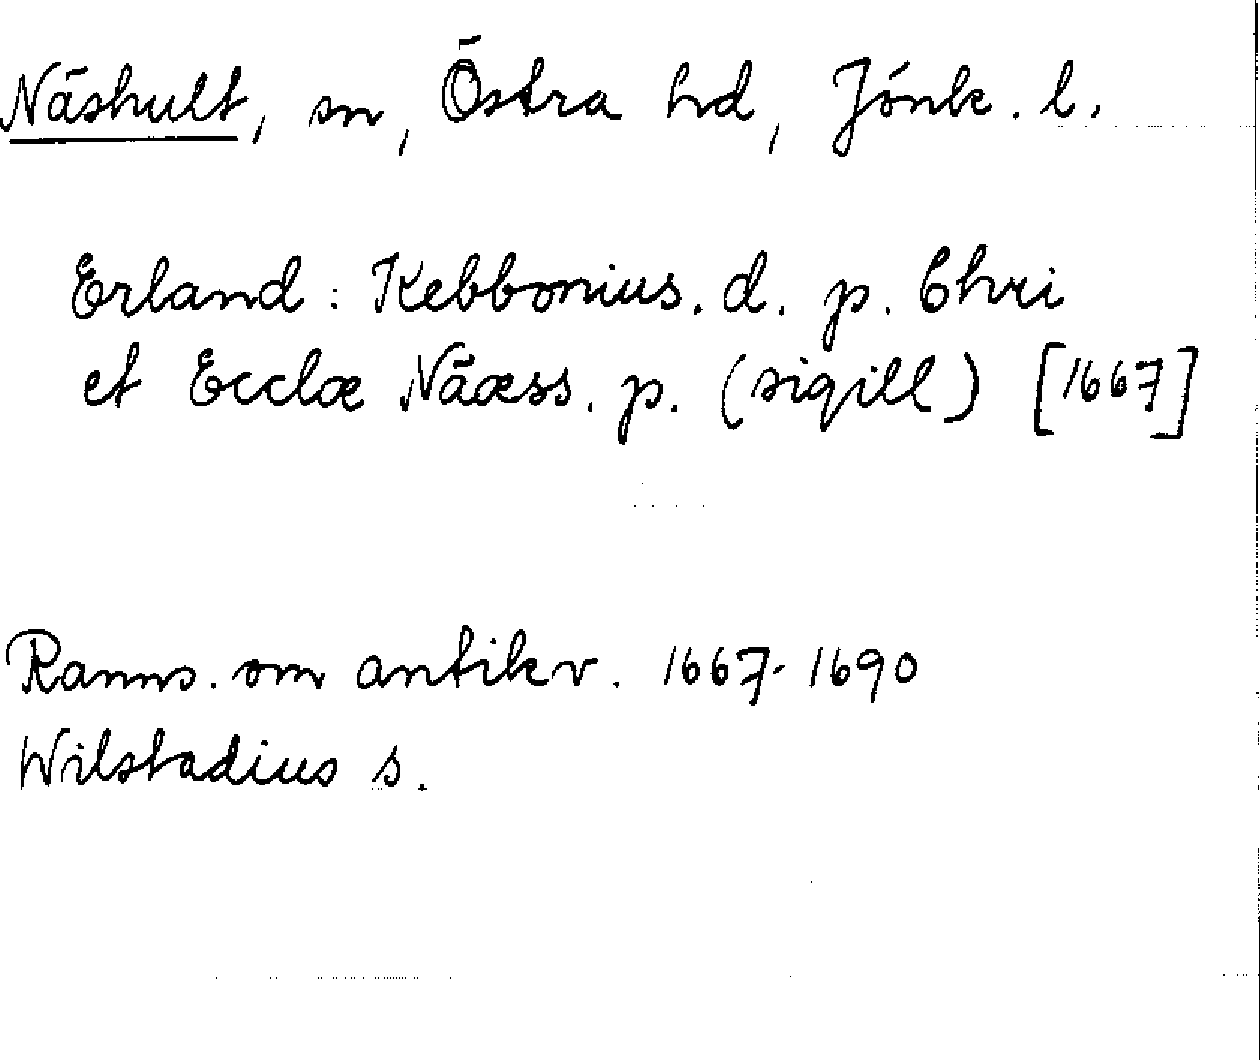 Näshult, sn, Östra hd, Jönk. l.
Erland: Kebbonius. d. p. Chri
et Ecclæ Nääess. p. (sigill) [1667]
Ranns. om antikv. 1667-1690
Wilstadius s.